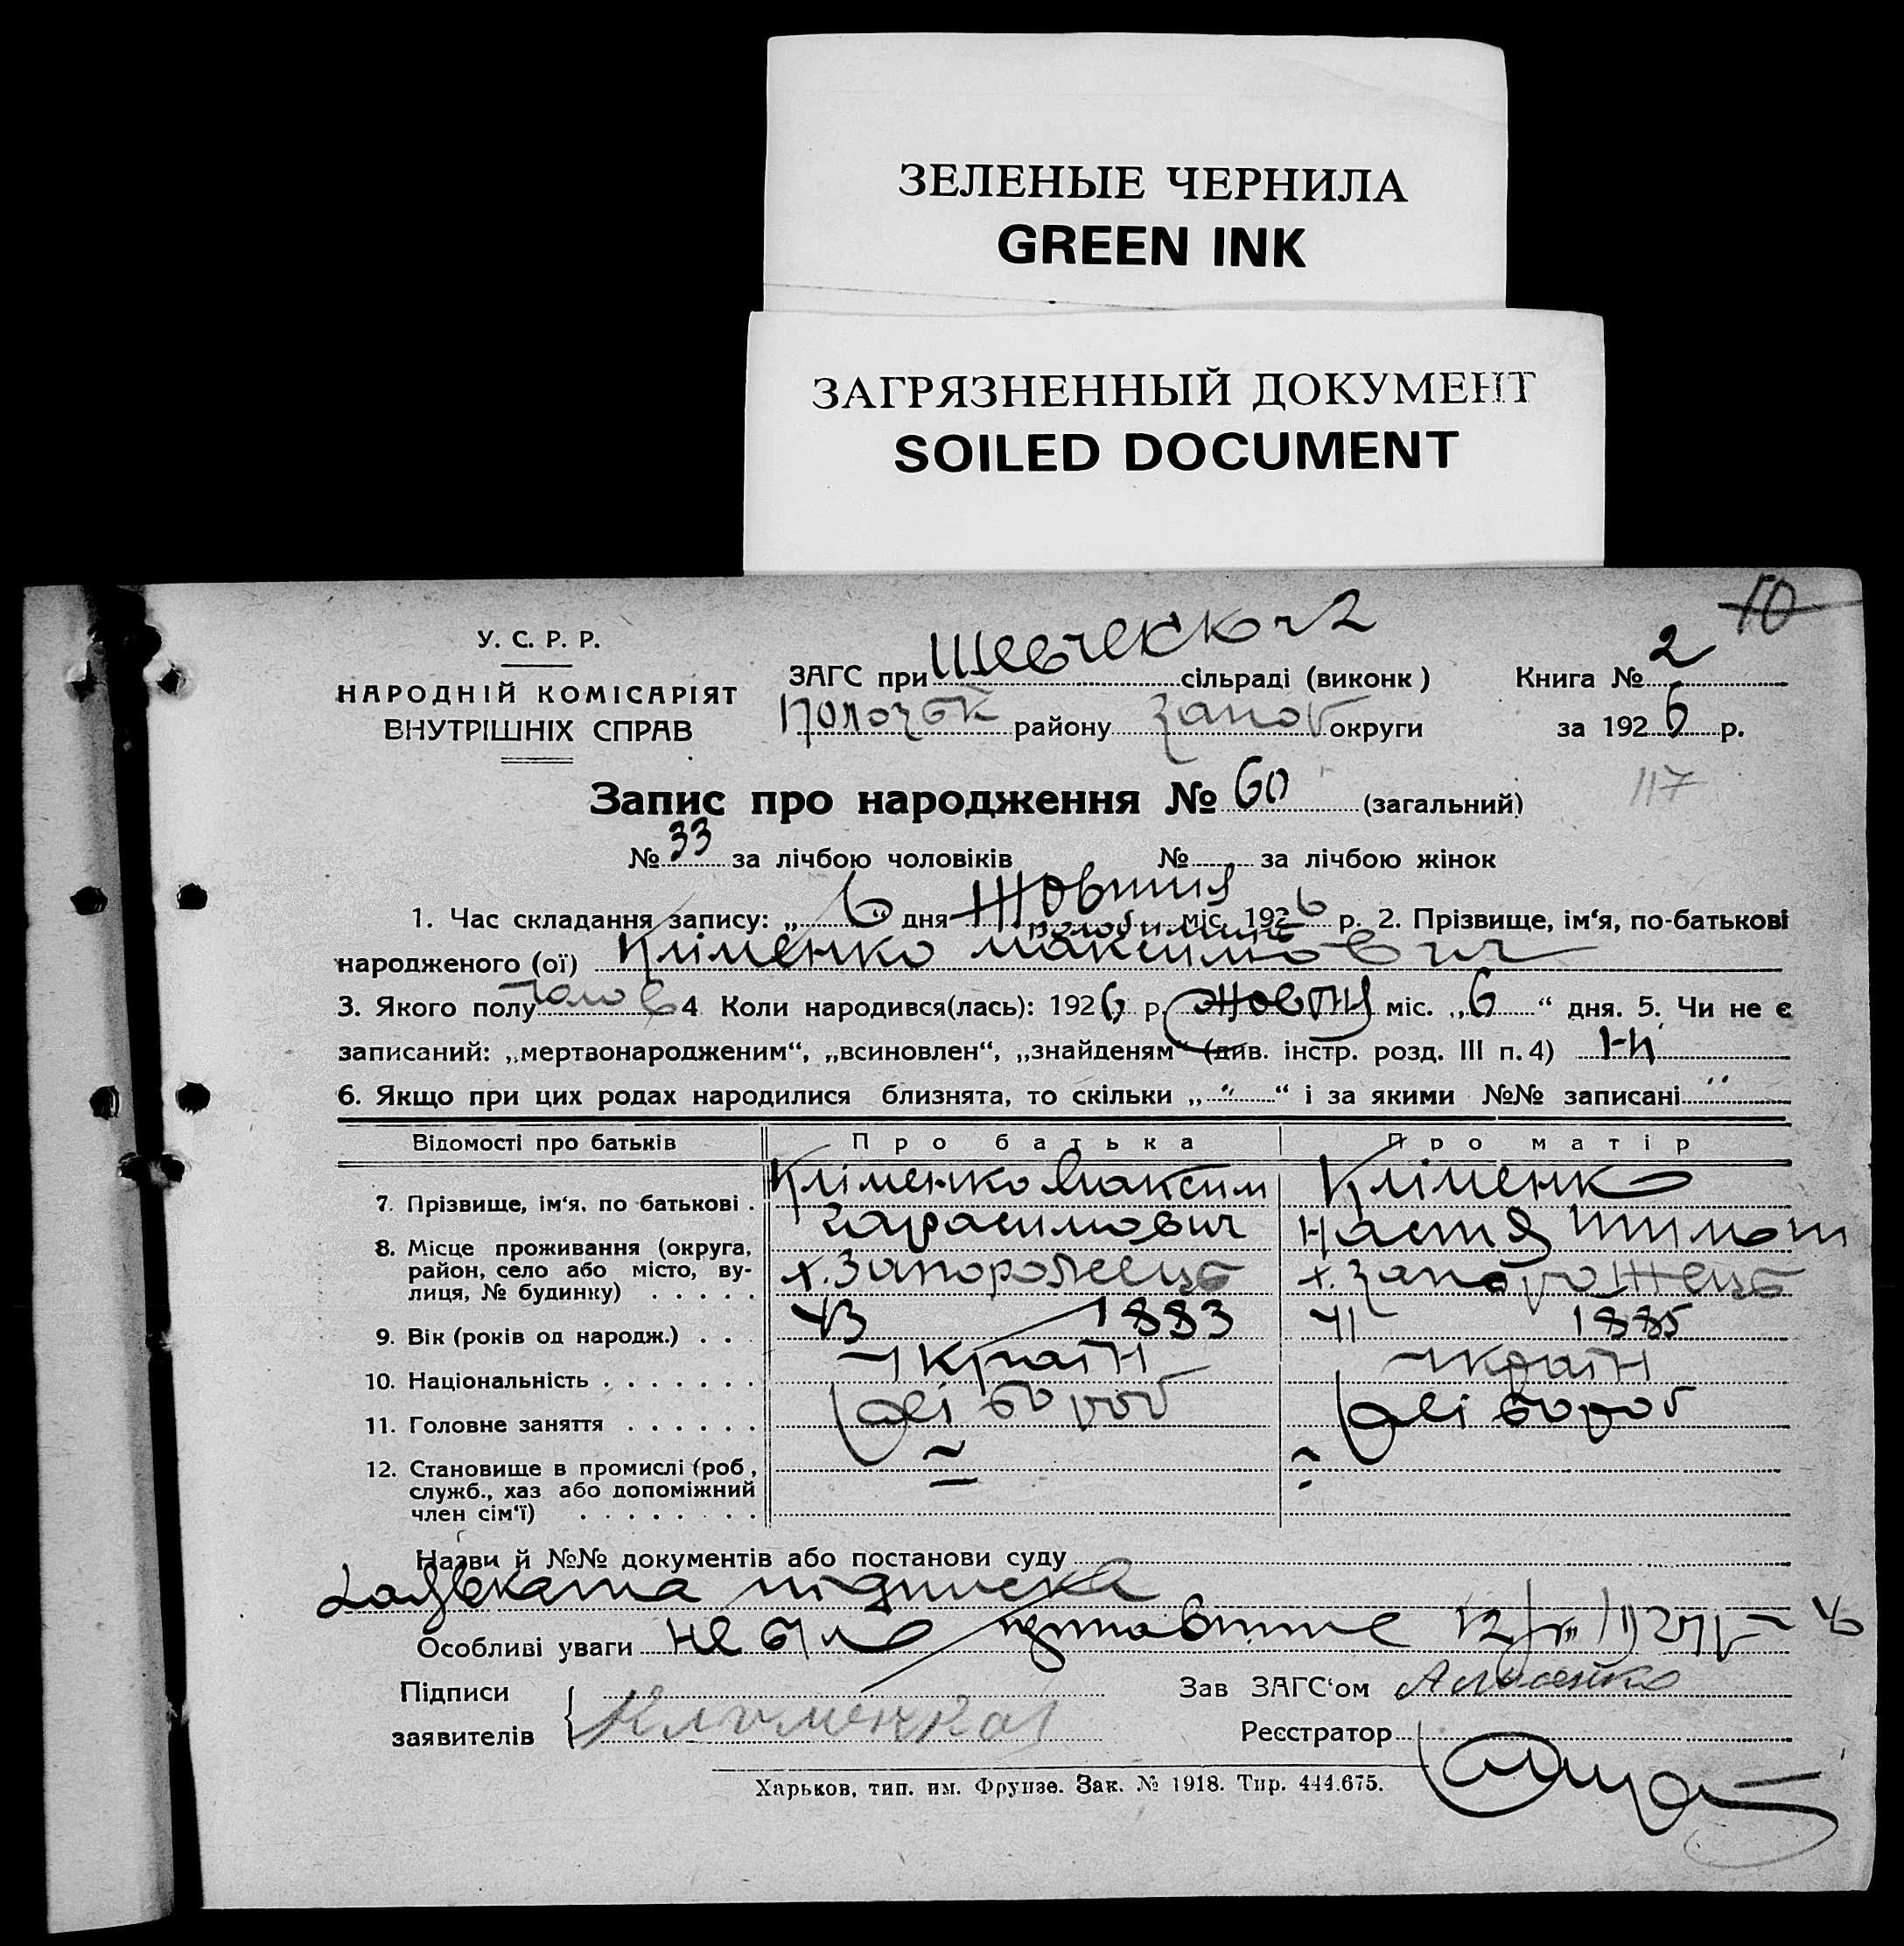 ЗЕЛЕНЫЕ ЧЕРНИЛА
GREEN INK
ЗАГРЯЗНЕННЫЙ ДОКУМЕНТ
SOILED DOCUMENT
10
У. С. Р. Р.
НАРОДНІЙ КОМІСАРІЯТ
ВНУТРІШНІХ СПРАВ
ЗАГС при сільраді (виконк)
району Запор округи
Книга № 2
за 1926 р.
117
Запис про народження № 60 (загальний)
№ 33 за лічбою чоловіків № за лічбою жінок
1. Час складання запису: „6“ дня Жовтня міс. 1926 р. 2. Прізвище, ім‘я, по-батькові
народженого (ої) Кліменко Максимович
3. Якого полу Чолов 4 Коли народився(лась): 1926 р. Жовтня міс. „6“ дня. 5. Чи не є
записаний: „мертвонародженим“, „всиновлен“, „знайденям“ (див. інстр. розд. III п. 4) Ні
6. Якщо при цих родах народилися близнята, то скільки „ “ “ і за якими №№ записані "
Відомості про батьків Про батька Про матір
7. Прізвище, ім‘я, по батькові . Кліменко Максим Кліменко
Гарасимович Настя Тимош
8. Місце проживання (округа, район, село або місто, вулиця, № будинку) . . . . . х. Запорожець х. Запорожець
9. Вік (років од народж.) . . . 43 1883 41 1885
10. Національність . . . . . . . Україн Україн
11. Головне заняття . . . . . . хлібороб хлібороб
12. Становище в промислі (роб, служб., хаз або допоміжний член сім‘ї) . . . . . . . .
Назви й №№ документів або постанови суду
підписка
Особливі уваги не було
Підписи
заявителів
Клименко
Зав ЗАГС‘ом
Реєстратор
Харьков, тип. им. Фрунзе. Зак. № 1918. Тир. 444.675.